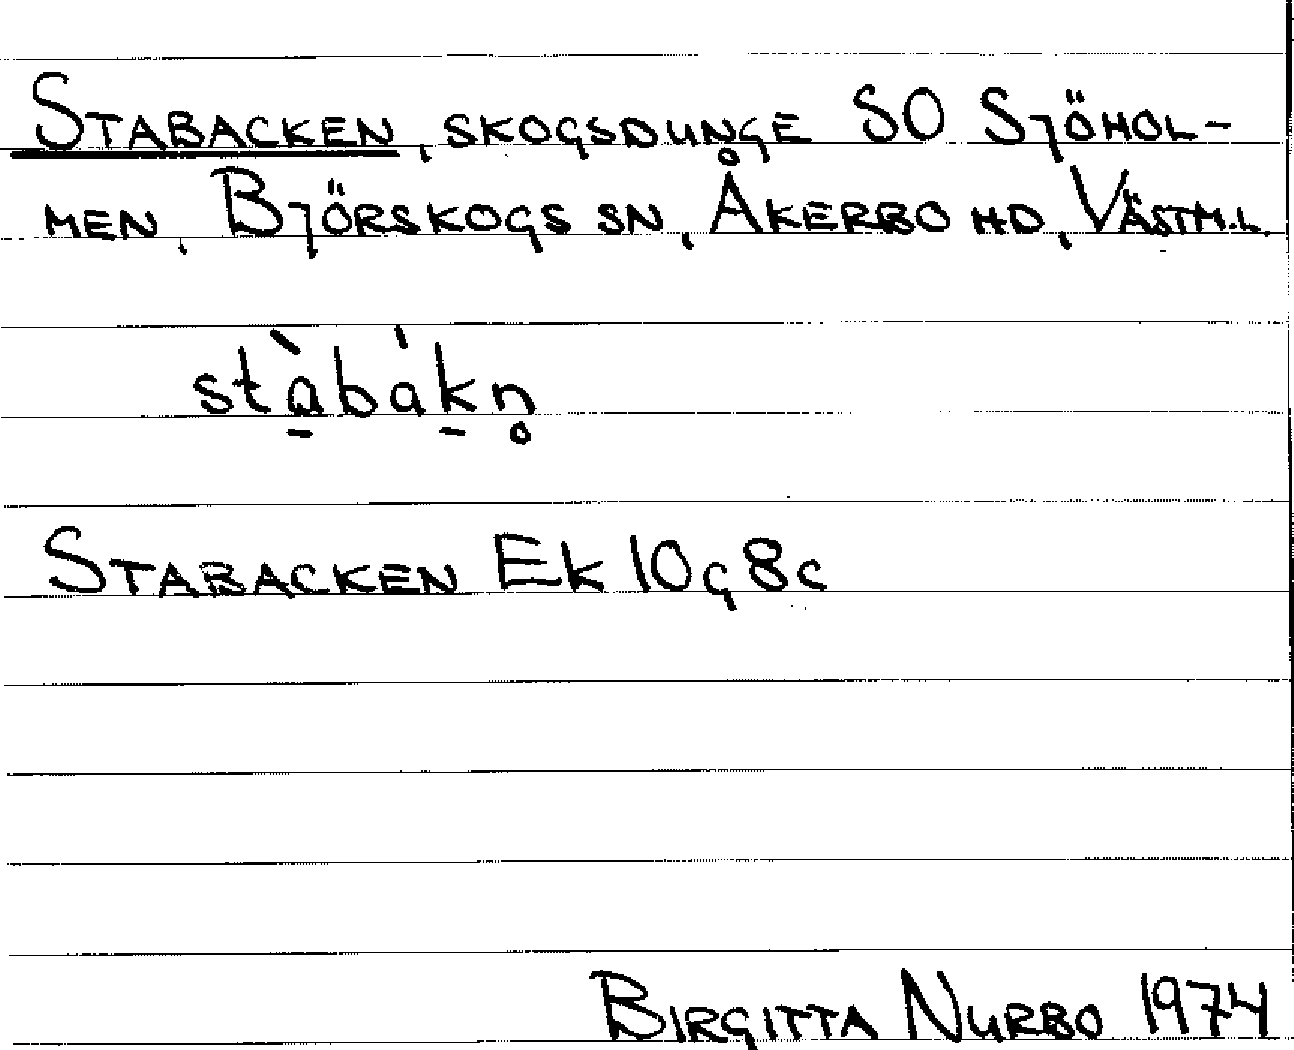 STABACKEN, SKOGSDUNGE SO SJÖHOL-
MEN, BJÖRSKOGS SN, ÅKERBO HD, VÄSTM.L.
stà̱bákn̥
STABACKEN Ek 10g8c
BIRGITTA NURBO 1974